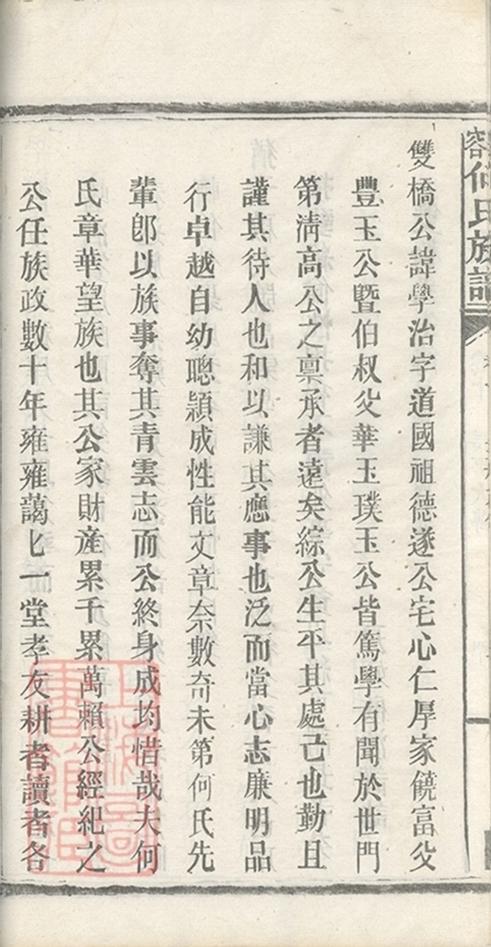 何氏族譜
雙橋公諱學治字道國祖德遂公宅心仁厚家饒富父
豐玉公暨伯叔父華玉璞玉公皆篤學有聞於世門
第清高公之禀承者遠矣綜公生平其處己也勤且
謹其待人也和以謙其應事也泛而當心志廉明品
行卓越自幼聰穎成性能文章奈數奇未第何氏先
輩郎以族事奪其青雲志而公終身成均惜哉夫何
氏章華望族也其公家財產累千累萬賴公經紀之
公任族政數十年雍雍藹匕一堂孝友耕者讀者各